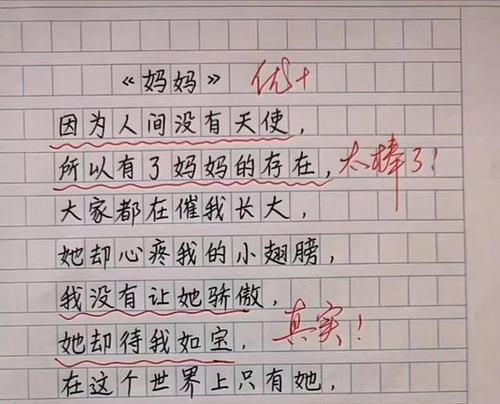 《妈妈》 优+
因为人间没有天使，
所以有了妈妈的存在，太棒了！
大家都在催我长大，
她却心疼我的小翅膀，
我没有让她骄傲，
她却待我如宝，真实！
在这个世界上只有她，